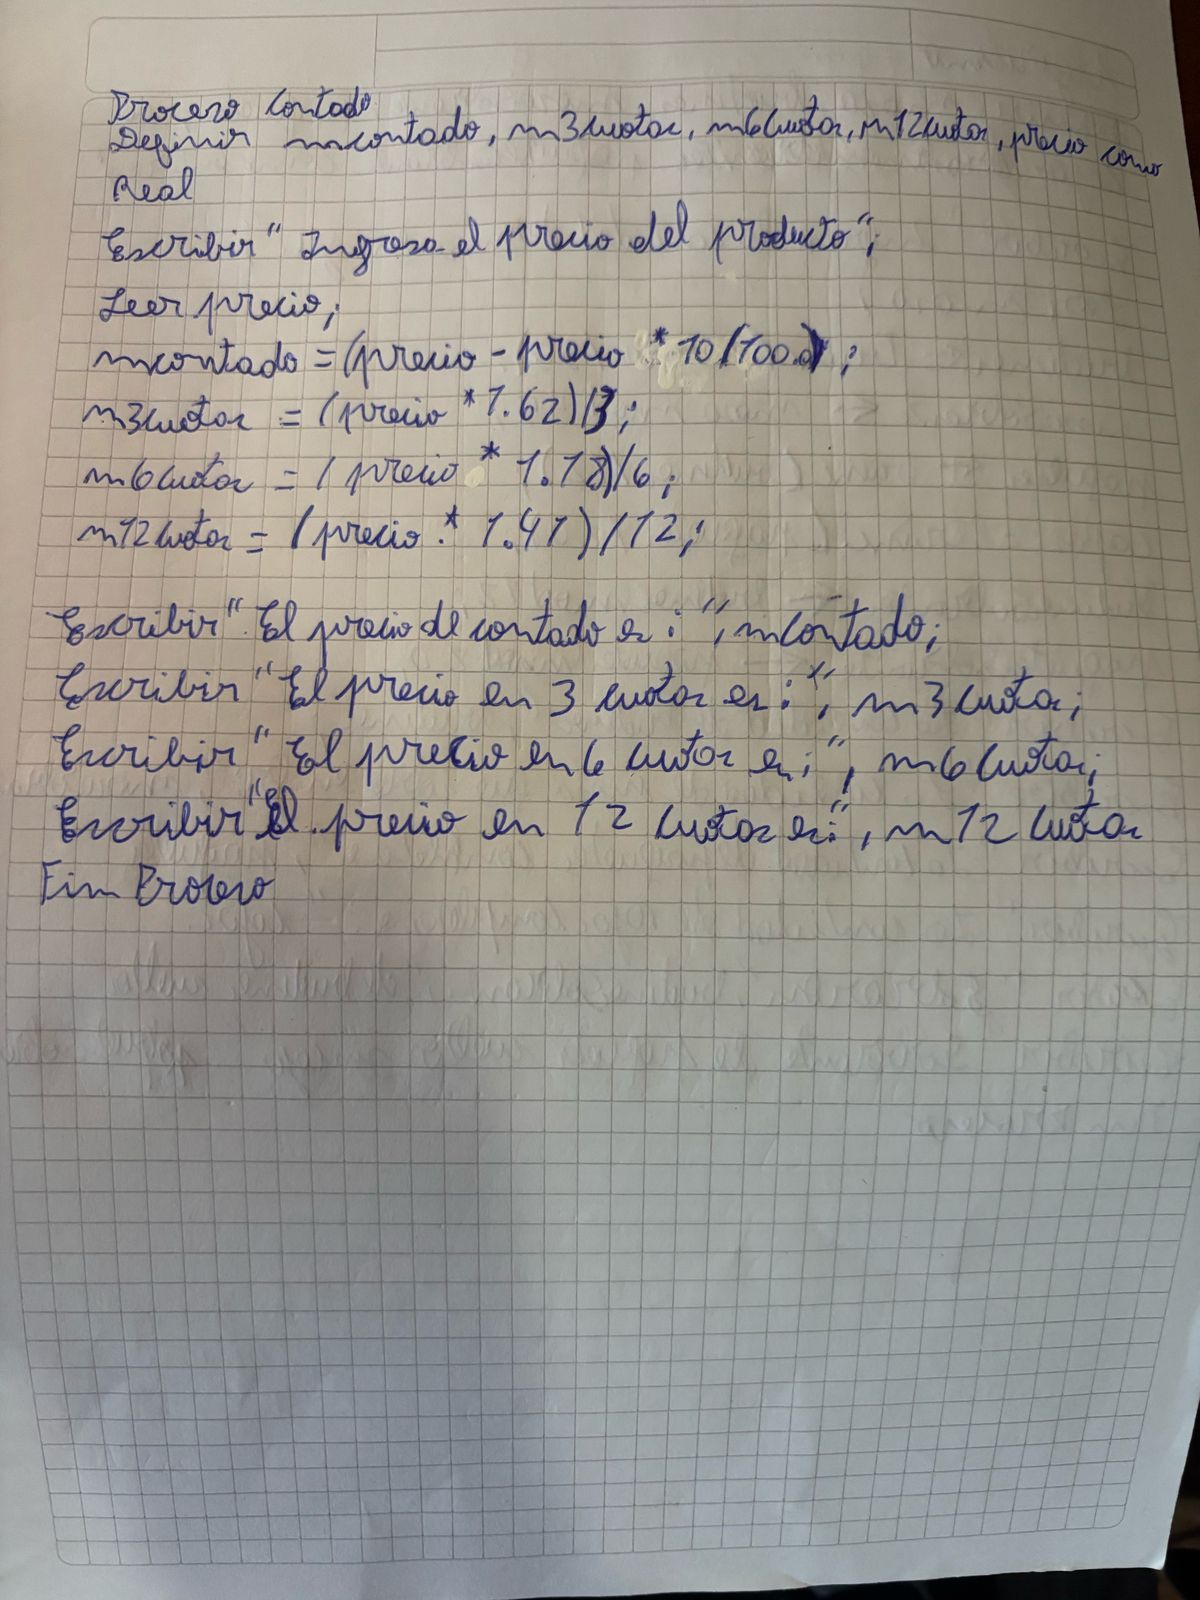 Proceso Contado
Definir mcontado, m3cuotas, m6cuotas, m12cuotas, precio como
Real
Escribir "Ingresa el precio del producto";
Leer precio;
mcontado = (precio - precio * 10/100.0);
m3cuotas = (precio * 1.62)/3;
m6cuotas = (precio * 1.18)/6;
m12cuotas = (precio * 1.41)/12;
Escribir "El precio de contado es: ", mcontado;
Escribir "El precio en 3 cuotas es: ", m3cuotas;
Escribir "El precio en 6 cuotas es: ", m6cuotas;
Escribir "El precio en 12 cuotas es: ", m12cuotas
Fin Proceso